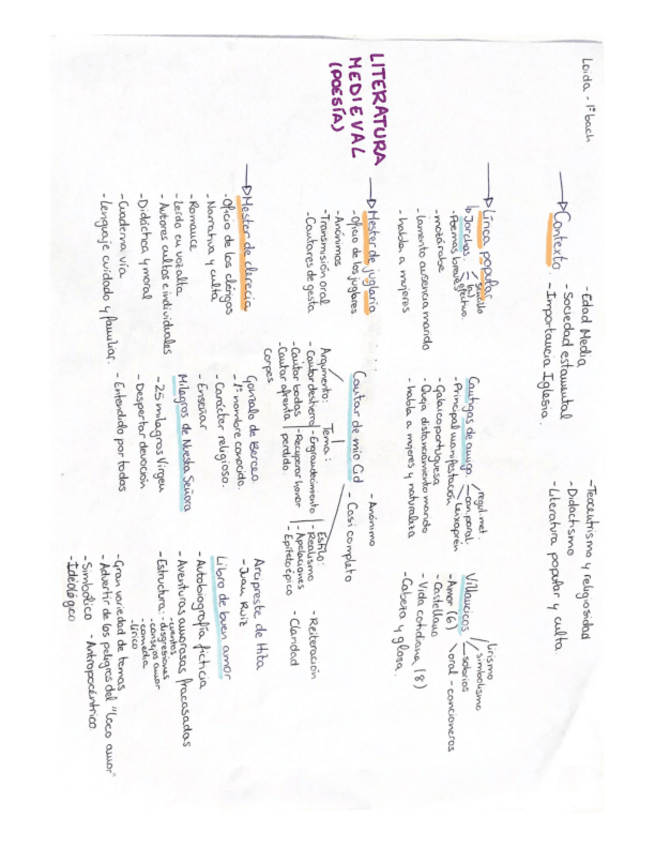 Loida - 1º bach
LITERATURA
MEDIEVAL
(POESÍA)
Contexto
- Edad Media
- Sociedad estamental
- Importancia Iglesia.
- Teocentrismo y religiosidad
- Didactismo
- Literatura popular y culta
Lírica popular
Jarchas:
- Poemas breves
- mozárabe
- lamento ausencia marido
- habla a mujeres
Cantigas de amigo
- Principal manifestación
- Galaicoportuguesa
- Queja distanciamiento marido
- habla a mujeres y naturaleza
regul. met.
con. paral.
leixaprén
Villancicos
- Amor (6)
- Castellano
- Vida cotidiana (8)
- Cabeza y glosa.
lirismo
simbolismo
oral - cancioneros
Mester de juglaría
- Oficio de los juglares
- Anónimos
- Transmisión oral
- Cantares de gesta
Cantar de mio Cid
- Anónimo
- Casi completo
Argumento:
- Cantar destierro
- Cantar bodas
- Cantar afrenta
corpes
Tema:
- Engrandecimiento
- Recuperar honor
perdido
Estilo:
- Realismo
- Apelaciones
- Epíteto épico
- Reiteración
- Claridad
Mester de clerecía
- Oficio de los clérigos
- Narrativa y culta
- Romance
- Leído en voz alta
- Autores cultos e individuales
- Didáctica y moral
- Cuaderna vía
- Lenguaje cuidado y familiar.
Gonzalo de Berceo
- 1º nombre conocido.
- Carácter religioso.
- Enseñar
Milagros de Nuestra Señora
- 25 milagros Virgen
- Despertar devoción
- Entendido por todos
Arcipreste de Hita
- Juan Ruiz
Libro de buen amor
- Autobiografía ficticia
- Aventuras amorosas fracasadas
- Estructura:
- cuentos
- disgresiones
- consejos amor
- comedia
- lírico
- Gran variedad de temas
- Advertir de los peligros del "loco amor"
- Simbólico - Antropocéntrico
- Ideológico